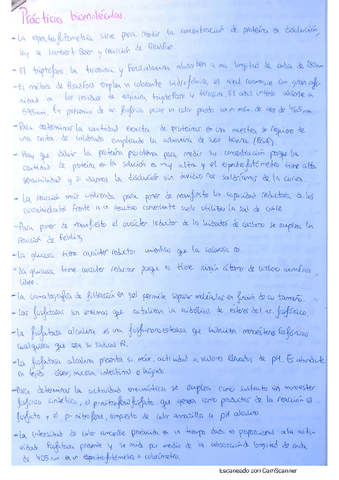 Prácticas biomoléculas.
- La espectrofotometría sirve para medir la concentración de proteína en disolución,
ley de Lambert-Beer y reacción de Bradford.
- El triptófano, la tirosina y fenilalanina absorben a una longitud de onda de 280nm
- El método de Bradford emplea un colorante hidrofóbico, el cual reacciona con gran afi-
nidad a los residuos de arginina, triptófano y tirosina. El azul intenso absorbe a
595nm. En presencia de ac. fosfórico
- Para determinar la cantidad exacta de proteínas en una muestra, se requiere de
una recta de calibrado empleando la albúmina de suero bovina (BSA).
- Hay que diluir la proteína problema para medir su concentración porque la
cantidad de proteína en la solución es muy alta y el espectrofotómetro tiene alta
sensibilidad y si usamos la disolución sin diluirla se saldría de la curva.
- La reacción más utilizada para poner de manifiesto la capacidad reductora de los
carbohidratos frente a un reactivo conveniente suele utilizar la sal de cobre
- Para poner de manifiesto el carácter reductor de los hidratos de carbono se emplea la
reacción de Fehling
- La glucosa tiene carácter reductor mientras que la sacarosa no.
- La glucosa tiene carácter reductor porque tiene algún átomo de carbono anomérico
libre.
- La cromatografía de filtración en gel permite separar moléculas en función de su tamaño.
- Las fosfatasas son enzimas que catalizan la hidrólisis de ésteres del ac. fosfórico
- La fosfatasa alcalina es una fosfomonoesterasa que hidroliza monoésteres fosfóricos
cualquiera que sea su radical R.
- La fosfatasa alcalina presenta su máx. actividad a valores elevados de pH. Es abundante
en tejido óseo, mucosa intestinal e hígado.
- Para determinar la actividad enzimática se emplea como sustrato un monoéster
fosfórico sintético, el p-nitrofenilfosfato que genera como productos de la reacción el
fosfato y el p-nitrofenol, compuesto de color amarillo a pH alcalino
- La intensidad de color amarillo producida en un tiempo dado es proporcional a la acti-
vidad fosfatasa presente y se mide por medio de la absorción de longitud de onda
de 405nm en un espectrofotómetro o colorímetro.
Escaneado con CamScanner